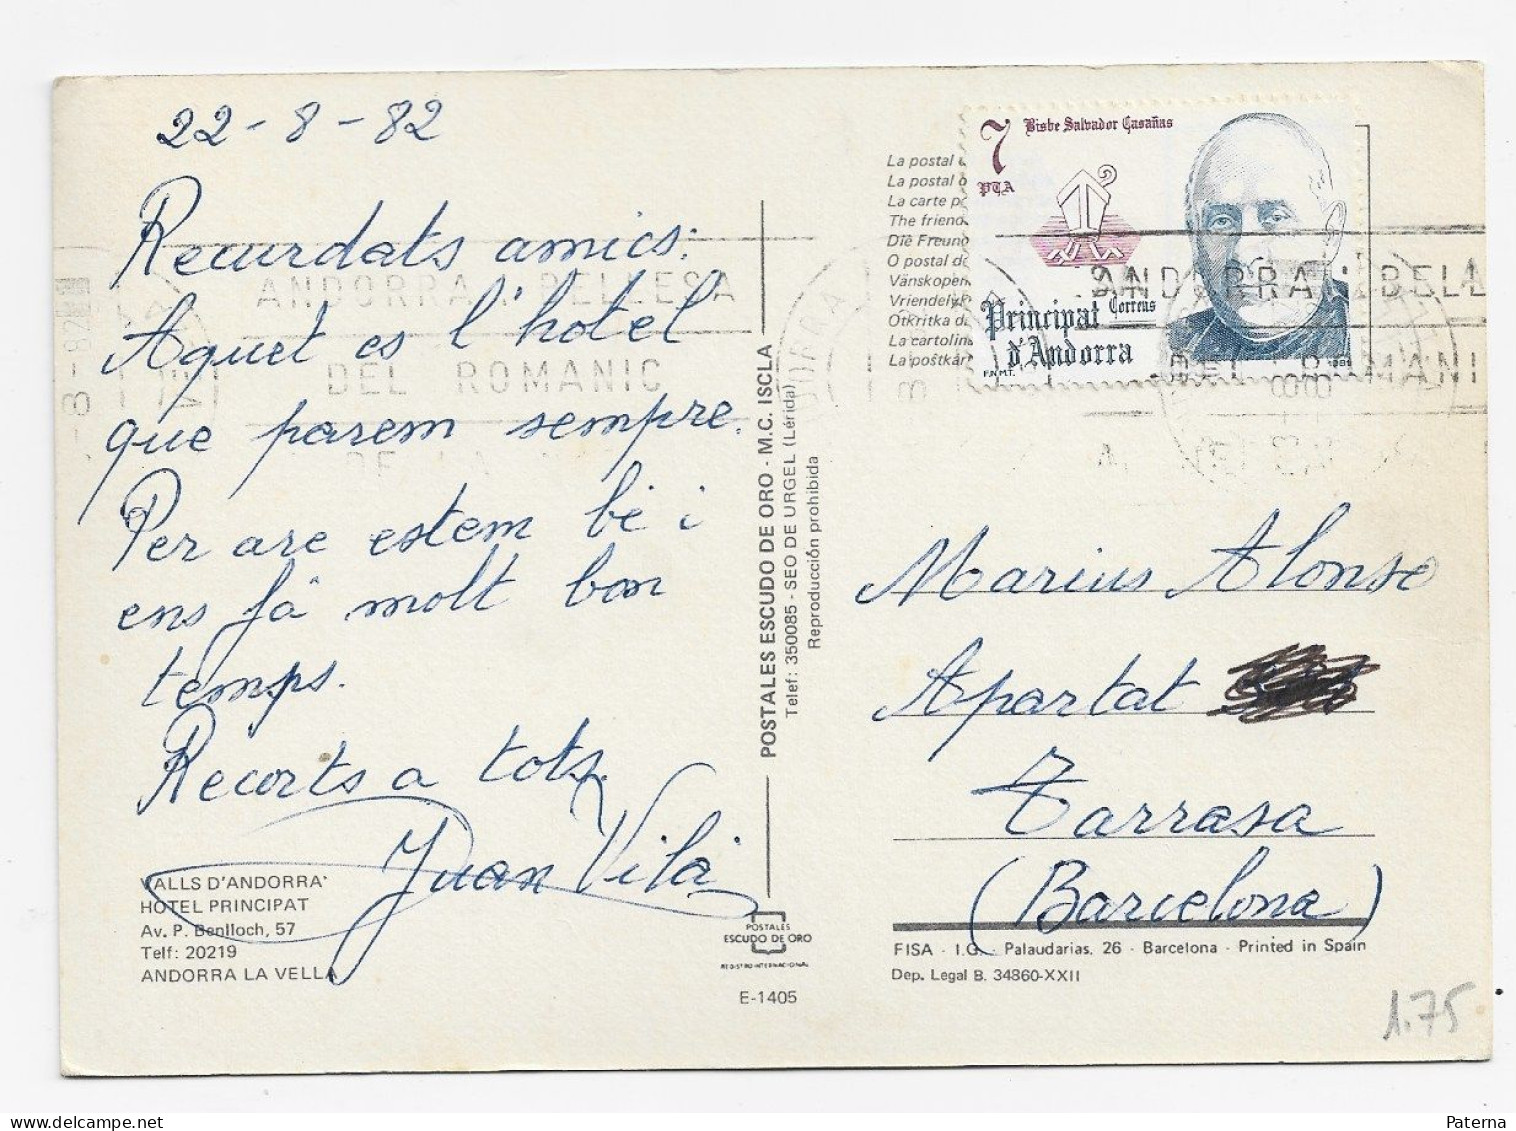 22-8-82
Recurdats amics:
Aquet es l'hotel
que parem sempre.
Per are estem bé i
ens fá molt bon
temps.
Recorts a tots.
Juan Vilá
VALLS D'ANDORRA
HOTEL PRINCIPAT
Av. P. Benlloch, 57
Telf: 20219
ANDORRA LA VELLA
ANDORRA : BELLESA
DEL ROMANIC
POSTALES ESCUDO DE ORO - M.C. ISCLA
Telef: 350085 - SEO DE URGEL (Lérida)
Reproducción prohibida
POSTALES
ESCUDO DE ORO
REGISTRO INTERNACIONAL
E-1405
La postal
La postal
La carte
The friend
Die Freund
O postal d
Vänskopen
Vriendely
Otkritka d
La cartolin
La poštkar
7 PTA
Bisbe Salvador Casañas
Correus
Principat
d'Andorra
F.N.M.T.
ANDORRA : BELL
DEL ROMANI
Marius Alonso
Apartat
Tarrasa
(Barcelona)
FISA - I.G. - Palaudarias, 26 - Barcelona - Printed in Spain
Dep. Legal B. 34860-XXII
1.75
Paterna